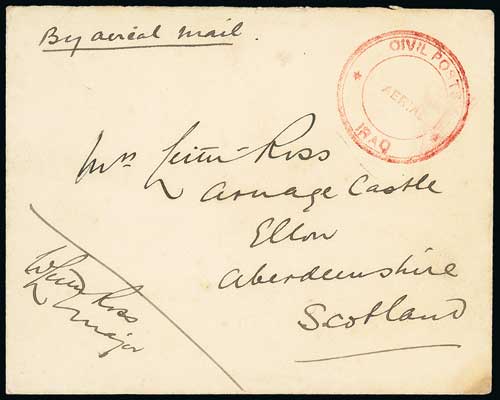 By aerial mail.
CIVIL POST
AERIAL
IRAQ
Mrs Leith-Ross
Arnage Castle
Ellon
Aberdeenshire
Scotland
W Leith Ross
Major